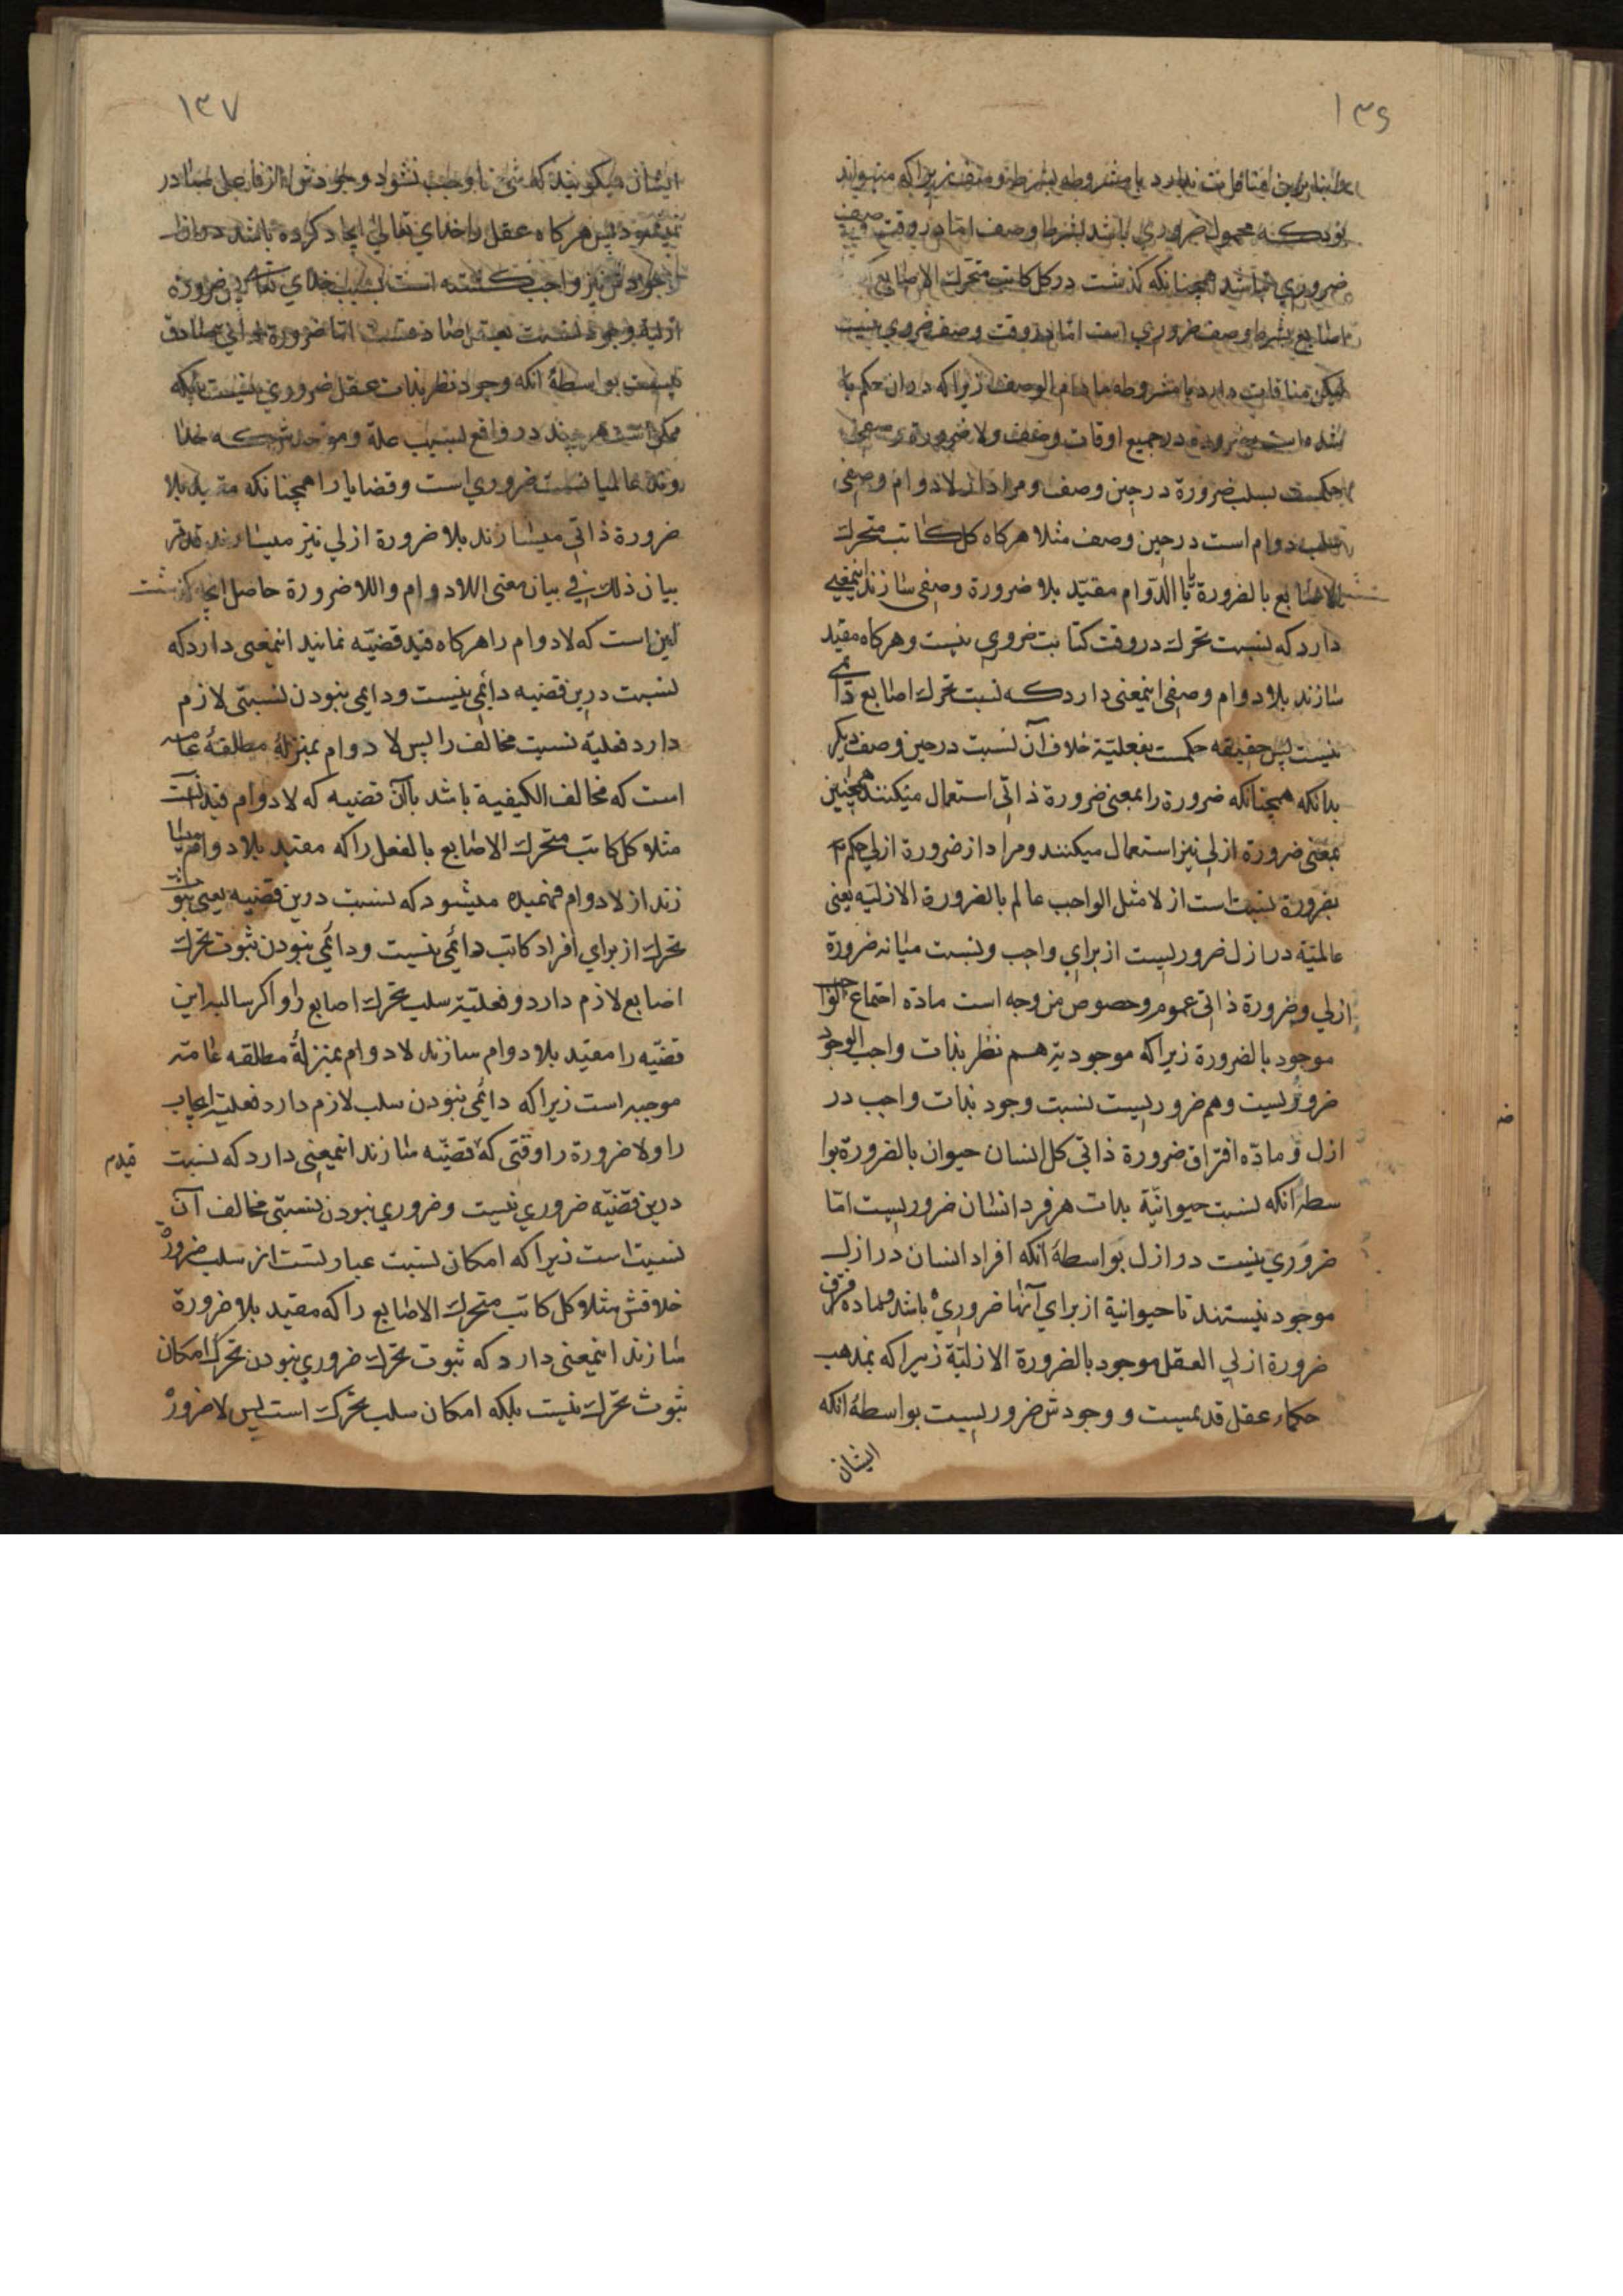 ۱۳۶
ضروري نباشد همچنانکه کذشت در کل کاتب متحرك الاصابع
اصابع بشرط وصف ضروري است اما در وقت وصف ضروري نیست
لیکن منافات دارد با مشروطه مادام الوصف زیراکه در ان حکم با
در جمیع اوقات وصف ولا ضرورة وصفی
بسلب ضرورة در حین وصف ومراد از لادوام وصفی
سلب دوام است در حین وصف مثلا هرکاه کل کاتب متحرك
الاصابع بالضرورة یا بالدوام مقیّد بلا ضرورة وصفی سازند اینمعنی
دارد که نسبت تحرك در وقت کتابت ضروری نیست وهرکاه مقید
سازند بلا دوام وصفی اینمعنی دارد که نسبت تحرك اصابع دائمی
نیست پس حقیقه حکمست بفعلیّة خلاف آن نسبت در حین وصف دیکر
بدانکه همچنانکه ضرورة را بمعنی ضرورة ذاتی استعمال میکنند همچنین
بمعنی ضرورة ازلي نیز استعمال میکنند ومراد از ضرورة ازلي حکم
بضرورة نسبت است ازلا مثل الواجب عالم بالضرورة الازلیّه یعنی
عالمیّة در ازل ضروریست از برای واجب ونسبت میانه ضرورة
ازلي وضرورة ذاتی عموم وخصوص من وجه است مادّه اجتماع الواجب
موجود بالضرورة زیراکه موجودیّة هم نظر بذات واجب الوجود
ضروریست وهم ضروریست نسبت وجود بذات واجب در
ازل ومادّه افتراق ضرورة ذاتی کل انسان حیوان بالضرورة بوا
سطه آنکه نسبت حیوانیّة بذات هر فرد انسان ضروریست امّا
ضروري نیست در ازل بواسطه آنکه افراد انسان در ازل
موجود نیستند تا حیوانیة از برای آنها ضروري باشد وماده افتراق
ضرورة ازلي العقل موجود بالضرورة الازلیّة زیراکه بمذهب
حکماء عقل قدیمست ووجودش ضروریست بواسطهٔ آنکه
ایشان
۱۳۷
ایشان میکویند که شئ تا واجب نشود وجودش از فاعل صادر
نمیشود پس هرکاه عقل را خدای تعالی ایجاد کرده باشد در ازل
وجودش نیز واجب کشته است بسبب خدای تعالی پس ضرورة
ازلیة وجود نسبت بعقل صادقست اما ضرورة ذاتی صادق
نیست بواسطهٔ آنکه وجود نظر بذات عقل ضروري نیست بلکه
ممکن است هر چند در واقع بسبب علة وموجدش که خدا
وند عالمیانست ضروري است وقضایا را همچنانکه مقید بلا
ضرورة ذاتی میسازند بلا ضرورة ازلي نیز میسازند
بیان ذلك في بیان معنی اللادوام واللاضرورة حاصل
این است که لادوام را هرکاه قید قضیّه نمایند اینمعنی دارد که
نسبت درین قضیه دائمی نیست ودایمی نبودن نسبتی لازم
دارد فعلیّة نسبت مخالف را پس لا دوام بمنزلهٔ مطلقهٔ عامه
است که مخالف الکیفیة باشد با آن قضیه که لادوام قید
مثلا کل کاتب متحرك الاصابع بالفعل را که مقید بلا دوام میسا
زند از لادوام فهمیده میشود که نسبت درین قضیه یعنی ثبوت
تحرك از برای افراد کاتب دائمی نیست ودائمی نبودن ثبوت تحرك
اصابع لازم دارد فعلیّة سلب تحرك اصابع را واکر سالبه این
قضیّه را مقیّد بلا دوام سازند لادوام بمنزلهٔ مطلقه عامّه
موجبه است زیراکه دائمی نبودن سلب لازم دارد فعلیّة ایجاب
را ولا ضرورة را وقتی که قضیّه سازند اینمعنی دارد که نسبت
قیدم
درین قضیّه ضروري نیست وضروري نبودن نسبتی مخالف آن
نسبت است زیراکه امکان نسبت عبارتست از سلب ضرورة
خلافش مثلا کل کاتب متحرك الاصابع را که مقید بلا ضرورة
سازند اینمعنی دارد که ثبوت تحرك ضروري نبودن تحرك امکان
ثبوت تحرك نیست بلکه امکان سلب تحرك است پس لا ضرورة